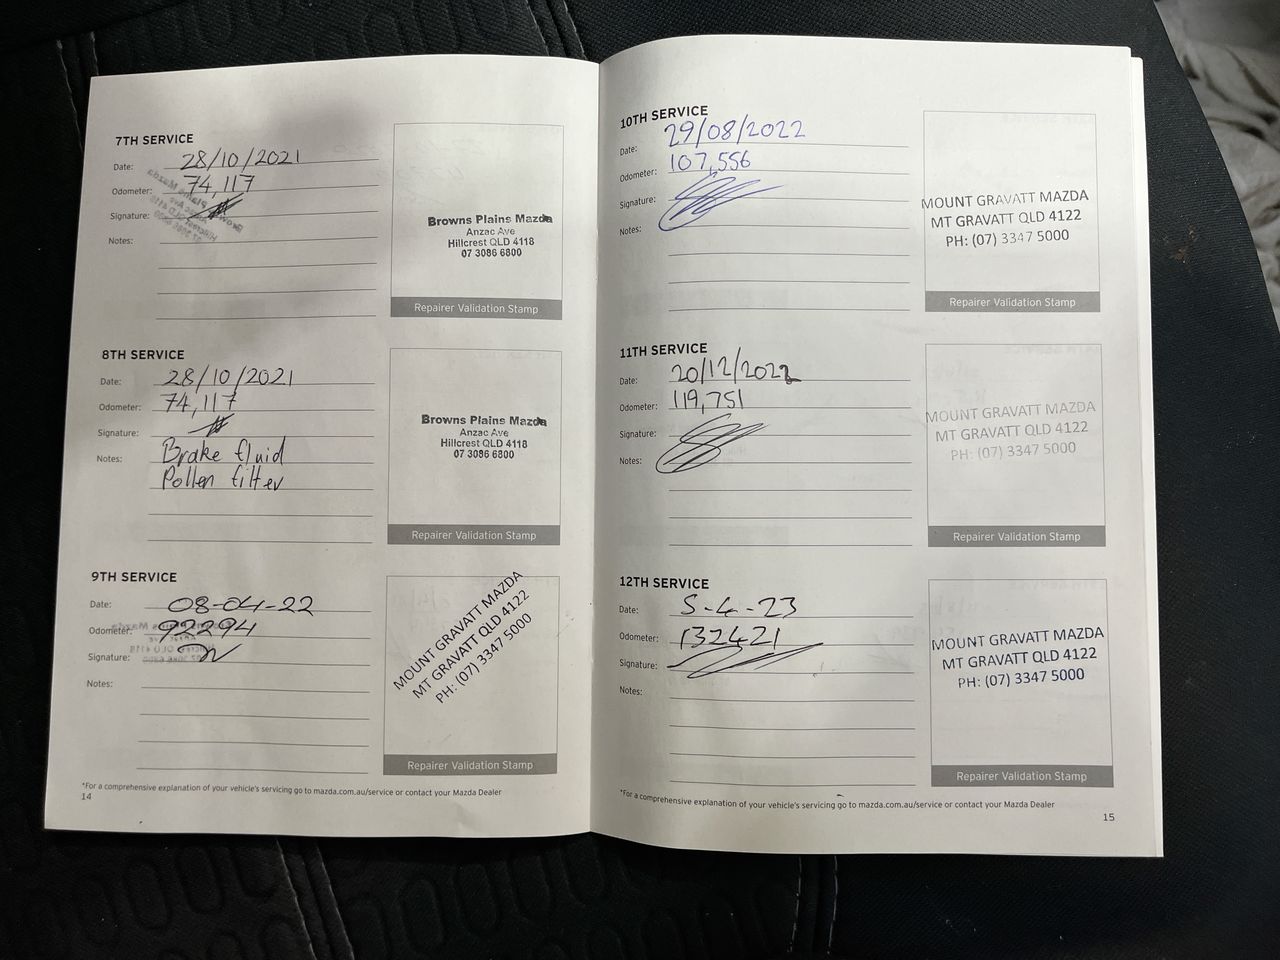 7TH SERVICE
Date: 28/10/2021
Odometer: 74,117
Signature:
Notes:
Browns Plains Mazda
Anzac Ave
Hillcrest QLD 4118
07 3086 6800
Repairer Validation Stamp
8TH SERVICE
Date: 28/10/2021
Odometer: 74,117
Signature:
Notes: Brake fluid
Pollen filter
Browns Plains Mazda
Anzac Ave
Hillcrest QLD 4118
07 3086 6800
Repairer Validation Stamp
9TH SERVICE
Date: 08-04-22
Odometer: 92294
Signature:
Notes:
MOUNT GRAVATT MAZDA
MT GRAVATT QLD 4122
PH: (07) 3347 5000
Repairer Validation Stamp
*For a comprehensive explanation of your vehicle's servicing go to mazda.com.au/service or contact your Mazda Dealer
14
10TH SERVICE
Date: 29/08/2022
Odometer: 107,556
Signature:
Notes:
MOUNT GRAVATT MAZDA
MT GRAVATT QLD 4122
PH: (07) 3347 5000
Repairer Validation Stamp
11TH SERVICE
Date: 20/12/2022
Odometer: 119,751
Signature:
Notes:
MOUNT GRAVATT MAZDA
MT GRAVATT QLD 4122
PH: (07) 3347 5000
Repairer Validation Stamp
12TH SERVICE
Date: 5-4-23
Odometer: 132421
Signature:
Notes:
MOUNT GRAVATT MAZDA
MT GRAVATT QLD 4122
PH: (07) 3347 5000
Repairer Validation Stamp
*For a comprehensive explanation of your vehicle's servicing go to mazda.com.au/service or contact your Mazda Dealer
15